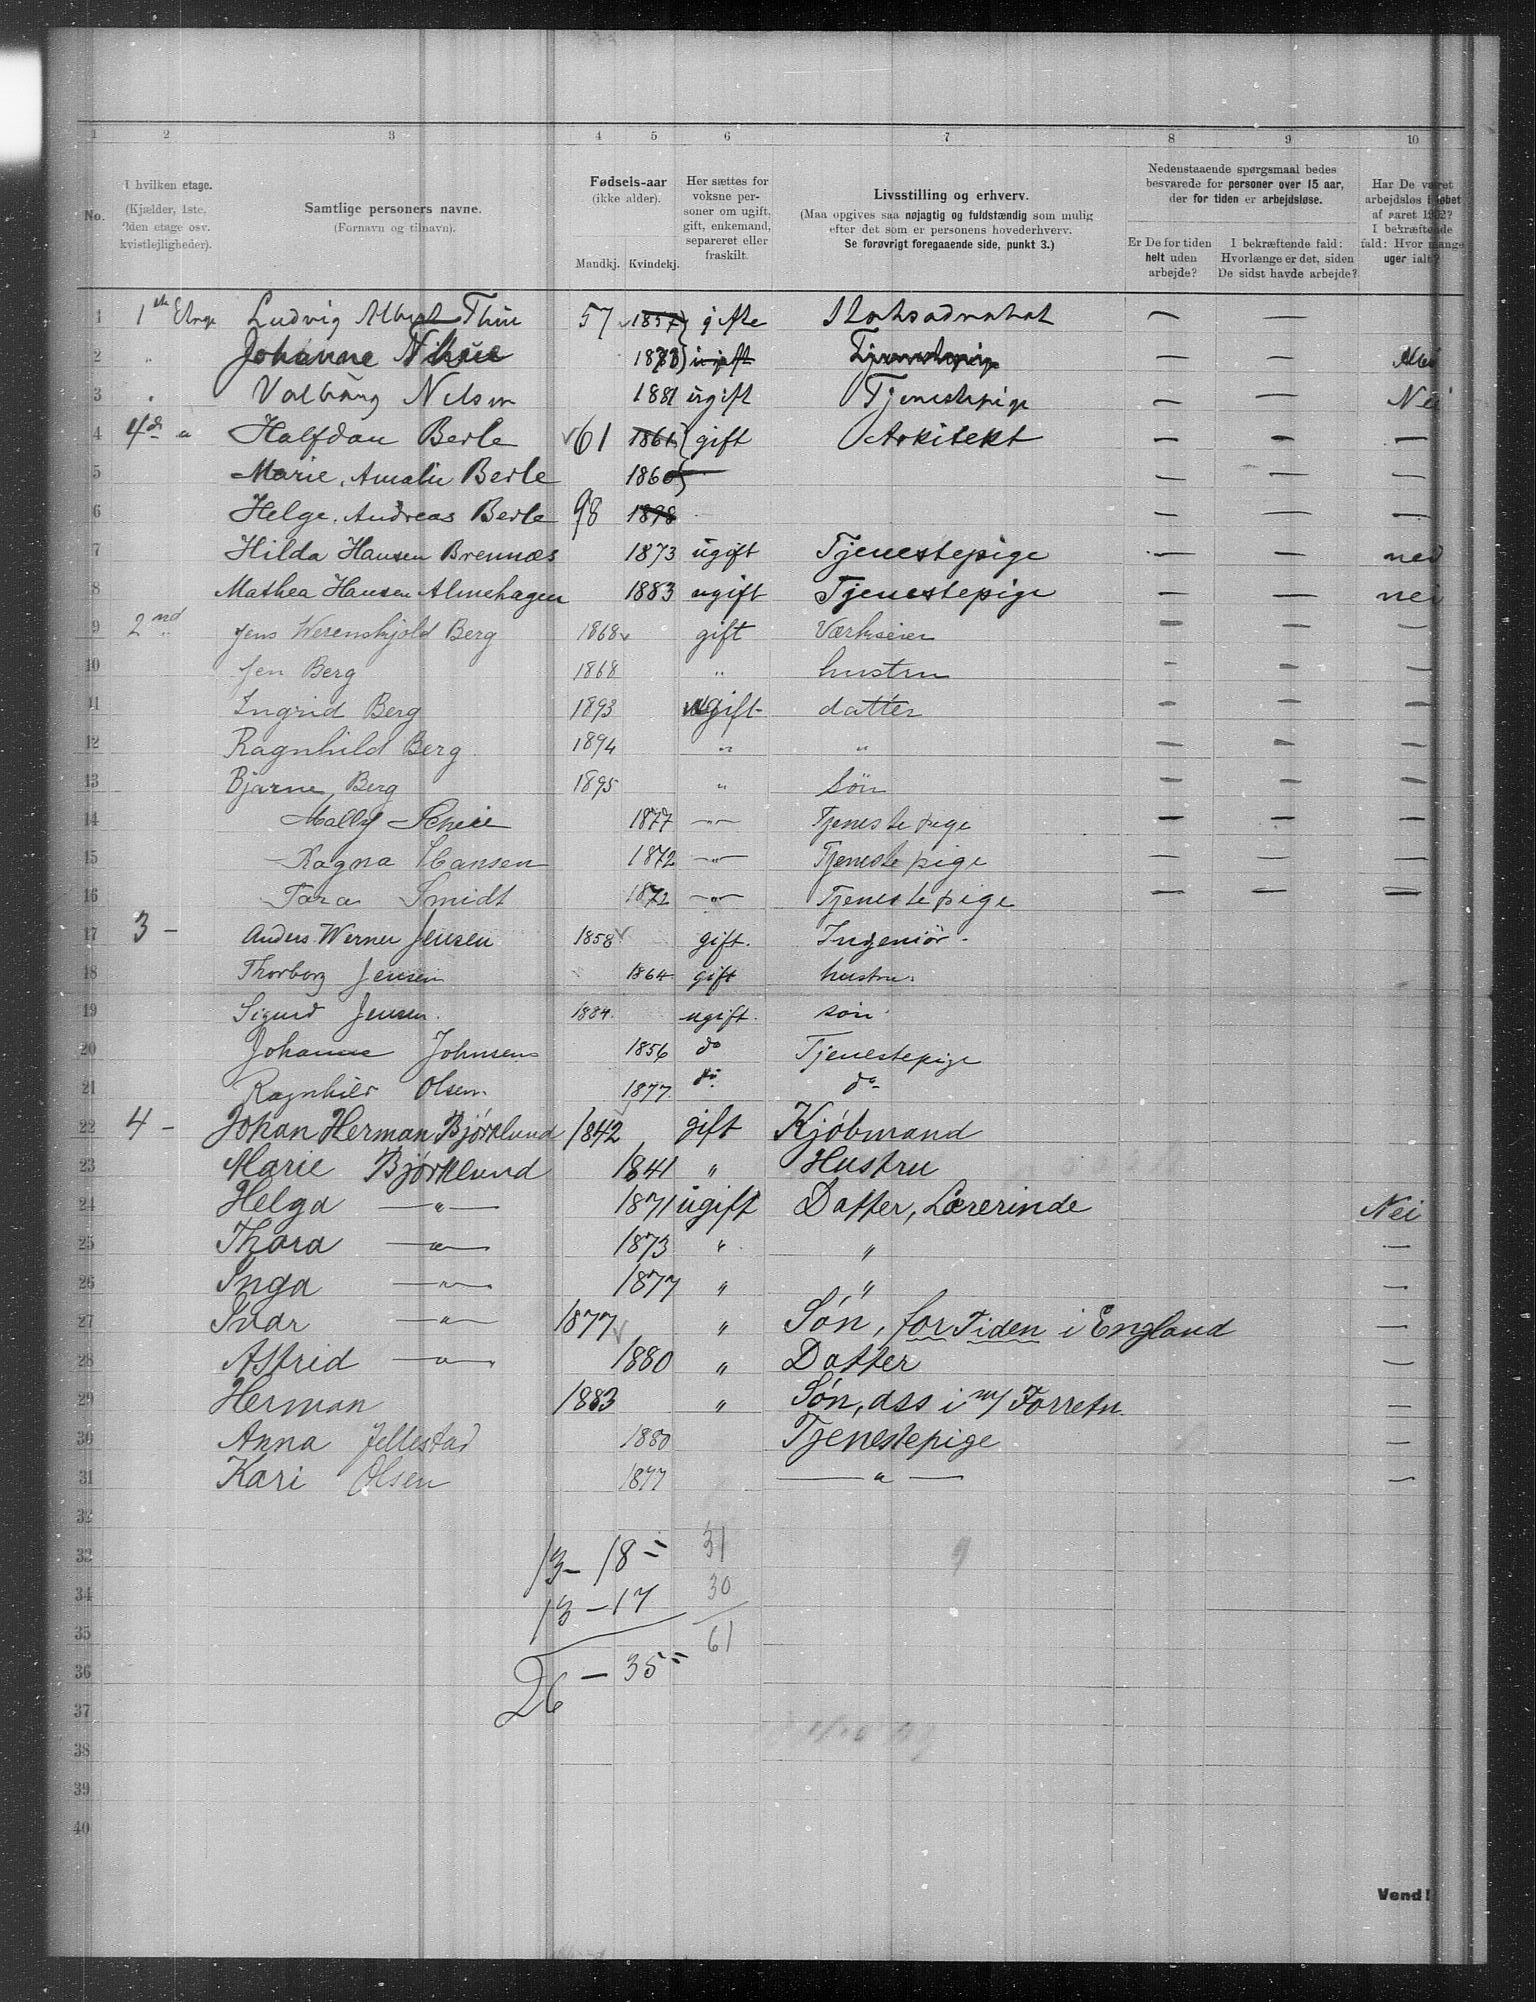 1 2 3 4 5 6 7 8 9 10
No.
I hvilken etage.
(Kjælder, 1ste, 2den etage osv. kvistlejligheder).
Samtlige personers navne.
(Fornavn og tilnavn).
Fødsels-aar
(ikke alder).
Mandkj. Kvindekj.
Her sættes for voksne personer om ugift, gift, enkemand, separeret eller fraskilt.
Livsstilling og erhverv.
(Maa opgives saa nøjagtig og fuldstændig som mulig efter det som er personens hovederhverv.
Se forøvrigt foregaaende side, punkt 3.)
Nedenstaaende spørgsmaal bedes besvarede for personer over 15 aar, der for tiden er arbejdsløse.
Er De for tiden helt uden arbejde?
I bekræftende fald: Hvorlænge er det, siden De sidst havde arbejde?
Har De været arbejdsløs i løbet af aaret 1902? I bekræftende fald: Hvor mange uger ialt?
1 1ste Etage Ludvig Albert Thue 57 1857 gifte — —
2 " Johanne Thue 1878 ugift Tjenestepige — — Nei
3 " Valborg Nilsen 1881 ugift Tjenestepige — — Nei
4 Halfdan Berle 61 1861 gift Arkitekt — — —
5 Marie Amalie Berle 1860 — — —
6 Helge Andreas Berle 98 1898 — — —
7 Hilda Hansen Brennæs 1873 ugift Tjenestepige — — nei
8 Mathea Hansen Almehagen 1883 ugift Tjenestepige — — nei
9 2nd " Jens Werenskjold Berg 1868 gift Værkseier — — —
10 Berg 1868 " hustru — — —
11 Ingrid Berg 1893 ugift datter — — —
12 Ragnhild Berg 1894 " " — — —
13 Bjarne Berg 1895 " søn — — —
14 Mally Scheie 1877 —"— Tjenestepige — — —
15 Ragna Hansen 1872 —"— Tjenestepige — — —
16 Smidt 1872 —"— Tjenestepige — — —
17 3 — Anders Werner Jensen 1858 gift. Ingeniør.
18 Thorborg Jensen 1864 gift hustru.
19 Sigurd Jensen. 1884. ugift. søn.
20 Johanne Johnsen 1856 do Tjenestepige
21 Ragnhild Olsen. 1877. do. do
22 4 — Johan Herman Bjørklund 1842 gift Kjøbmand
23 Marie Bjørklund 1841 " Hustru
24 Helga —"— 1871 ugift Datter, Lærerinde Nei
25 Thora —"— 1873 " " —
26 Inga —"— 1877 " " —
27 Ivar —"— 1877 " Søn, for Tiden i England —
28 Astrid —"— 1880 " Datter —
29 Herman 1883 " Søn, ass i m/ Forretn. —
30 Anna Jellestad 1880 Tjenestepige —
31 Kari Olsen 1877 —"— —
32
33 13 – 18 = 31 9
34 13 – 17 30
35 61
36 26 – 35 =
37
38
39
40
Vend!